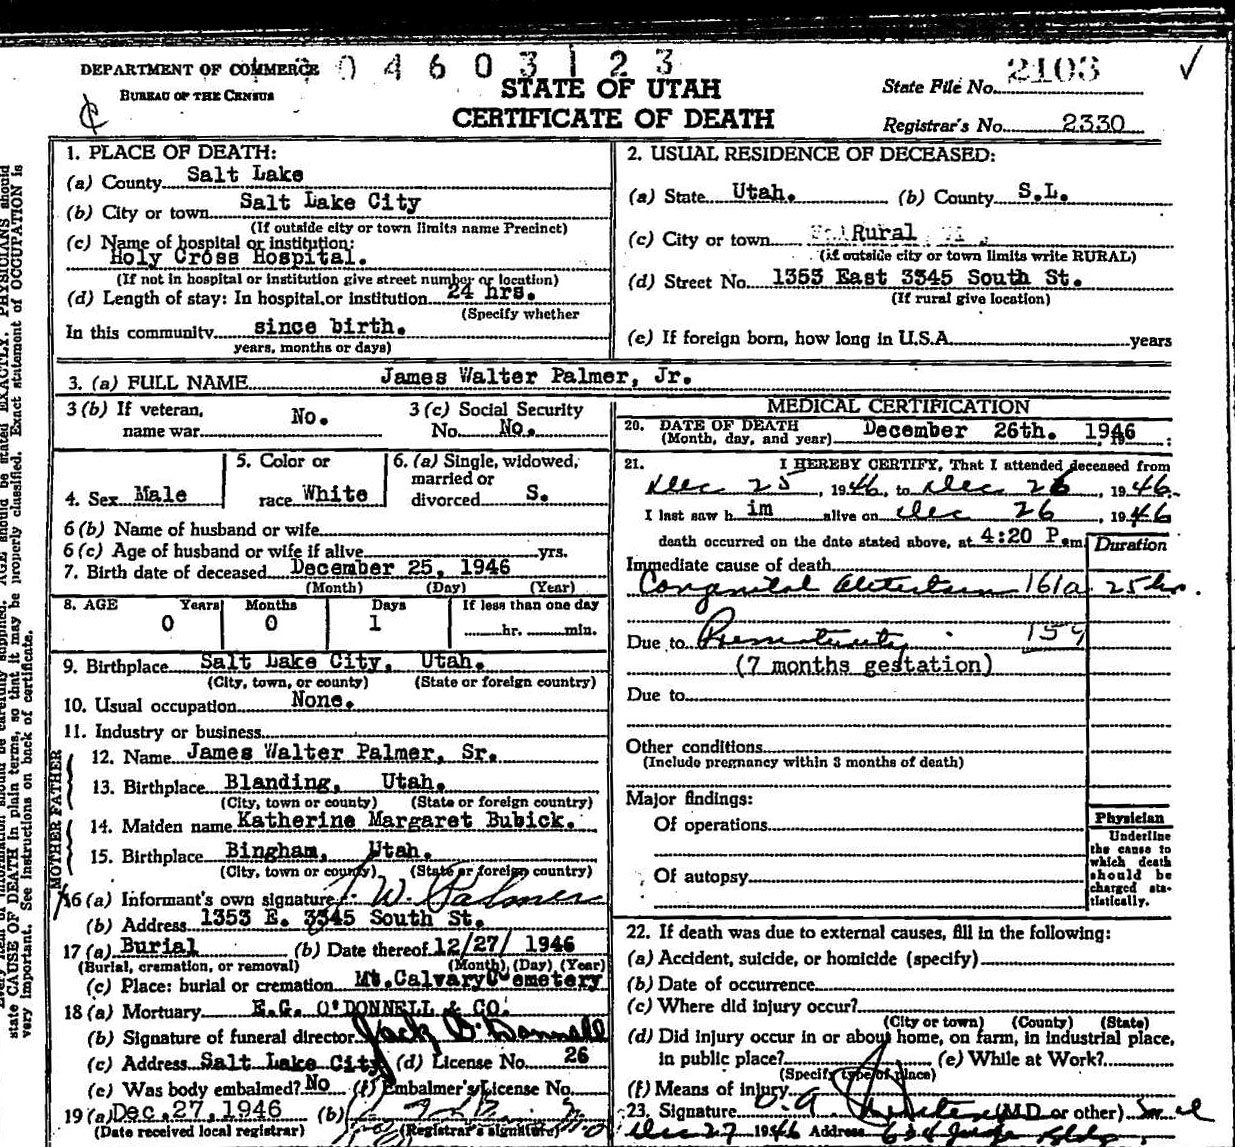 04603123
DEPARTMENT OF COMMERCE
BUREAU OF THE CENSUS
STATE OF UTAH
CERTIFICATE OF DEATH
State File No. 2103
Registrar's No. 2330
1. PLACE OF DEATH:
(a) County Salt Lake
(b) City or town Salt Lake City
(If outside city or town limits name Precinct)
(c) Name of hospital or institution:
Holy Cross Hospital.
(If not in hospital or institution give street number or location)
(d) Length of stay: In hospital or institution 24 hrs.
(Specify whether
In this community since birth.
years, months or days)
2. USUAL RESIDENCE OF DECEASED:
(a) State Utah. (b) County S.L.
(c) City or town Rural
(if outside city or town limits write RURAL)
(d) Street No. 1353 East 3345 South St.
(If rural give location)
(e) If foreign born, how long in U.S.A. years
3. (a) FULL NAME James Walter Palmer, Jr.
3 (b) If veteran, name war No.
3 (c) Social Security No. No.
4. Sex Male
5. Color or race White
6. (a) Single, widowed, married or divorced S.
6 (b) Name of husband or wife
6 (c) Age of husband or wife if alive yrs.
7. Birth date of deceased December 25, 1946
(Month) (Day) (Year)
8. AGE Years Months Days If less than one day
0 0 1 hr. min.
9. Birthplace Salt Lake City, Utah.
(City, town, or county) (State or foreign country)
10. Usual occupation None.
11. Industry or business
FATHER
12. Name James Walter Palmer, Sr.
13. Birthplace Blanding, Utah.
(City, town or county) (State or foreign country)
MOTHER
14. Maiden name Katherine Margaret Bubick.
15. Birthplace Bingham, Utah.
(City, town or county) (State or foreign country)
16 (a) Informant's own signature J. W. Palmer
(b) Address 1353 E. 3345 South St.
17 (a) Burial (b) Date thereof 12/27/ 1946
(Burial, cremation, or removal) (Month) (Day) (Year)
(c) Place: burial or cremation Mt. Calvary Cemetery
18 (a) Mortuary E.G. O'DONNELL & CO.
(b) Signature of funeral director Jack O'Donnell
(c) Address Salt Lake City (d) License No. 26
(e) Was body embalmed? No (f) Embalmer's License No.
19 (a) Dec. 27, 1946 (b)
(Date received local registrar) (Registrar's signature)
MEDICAL CERTIFICATION
20. DATE OF DEATH
(Month, day, and year) December 26th. 1946
21. I HEREBY CERTIFY, That I attended deceased from
Dec 25, 1946, to Dec 26, 1946.
I last saw him alive on Dec 26, 1946
death occurred on the date stated above, at 4:20 P.m.
Duration
Immediate cause of death
Congenital 161a 25 hrs.
Due to Prematurity 159
(7 months gestation)
Due to
Other conditions
(Include pregnancy within 3 months of death)
Major findings:
Of operations
Of autopsy
Physician
Underline
the cause to
which death
should be
charged sta-
tistically.
22. If death was due to external causes, fill in the following:
(a) Accident, suicide, or homicide (specify)
(b) Date of occurrence
(c) Where did injury occur?
(City or town) (County) (State)
(d) Did injury occur in or about home, on farm, in industrial place,
in public place? (e) While at Work?
(Specify type of place)
(f) Means of injury
23. Signature (M.D. or other)
Dec 27 1946 Address
AGE should be stated EXACTLY. PHYSICIANS should
state CAUSE OF DEATH in plain terms, so that it may be properly classified. Exact statement of OCCUPATION is
very important. See instructions on back of certificate.